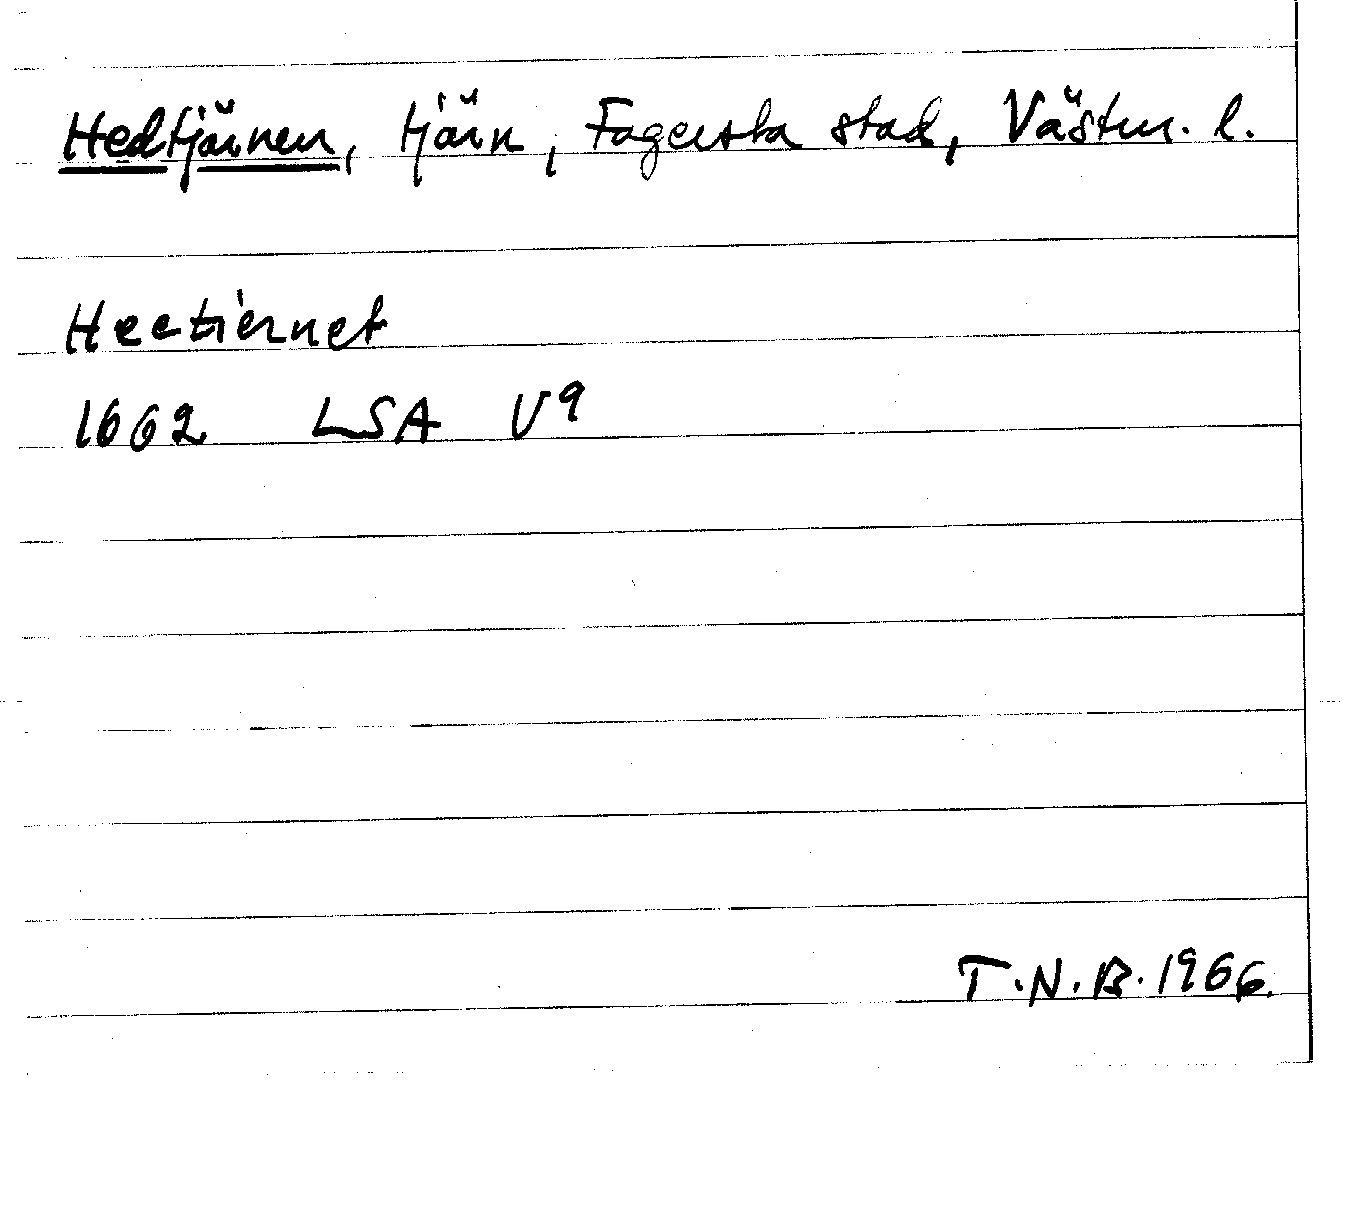 Hedtjärnen, tjärn, Fagersta stad, Västm. l.
Heetiernet
1662 LSA U9
T.N.B. 1966.